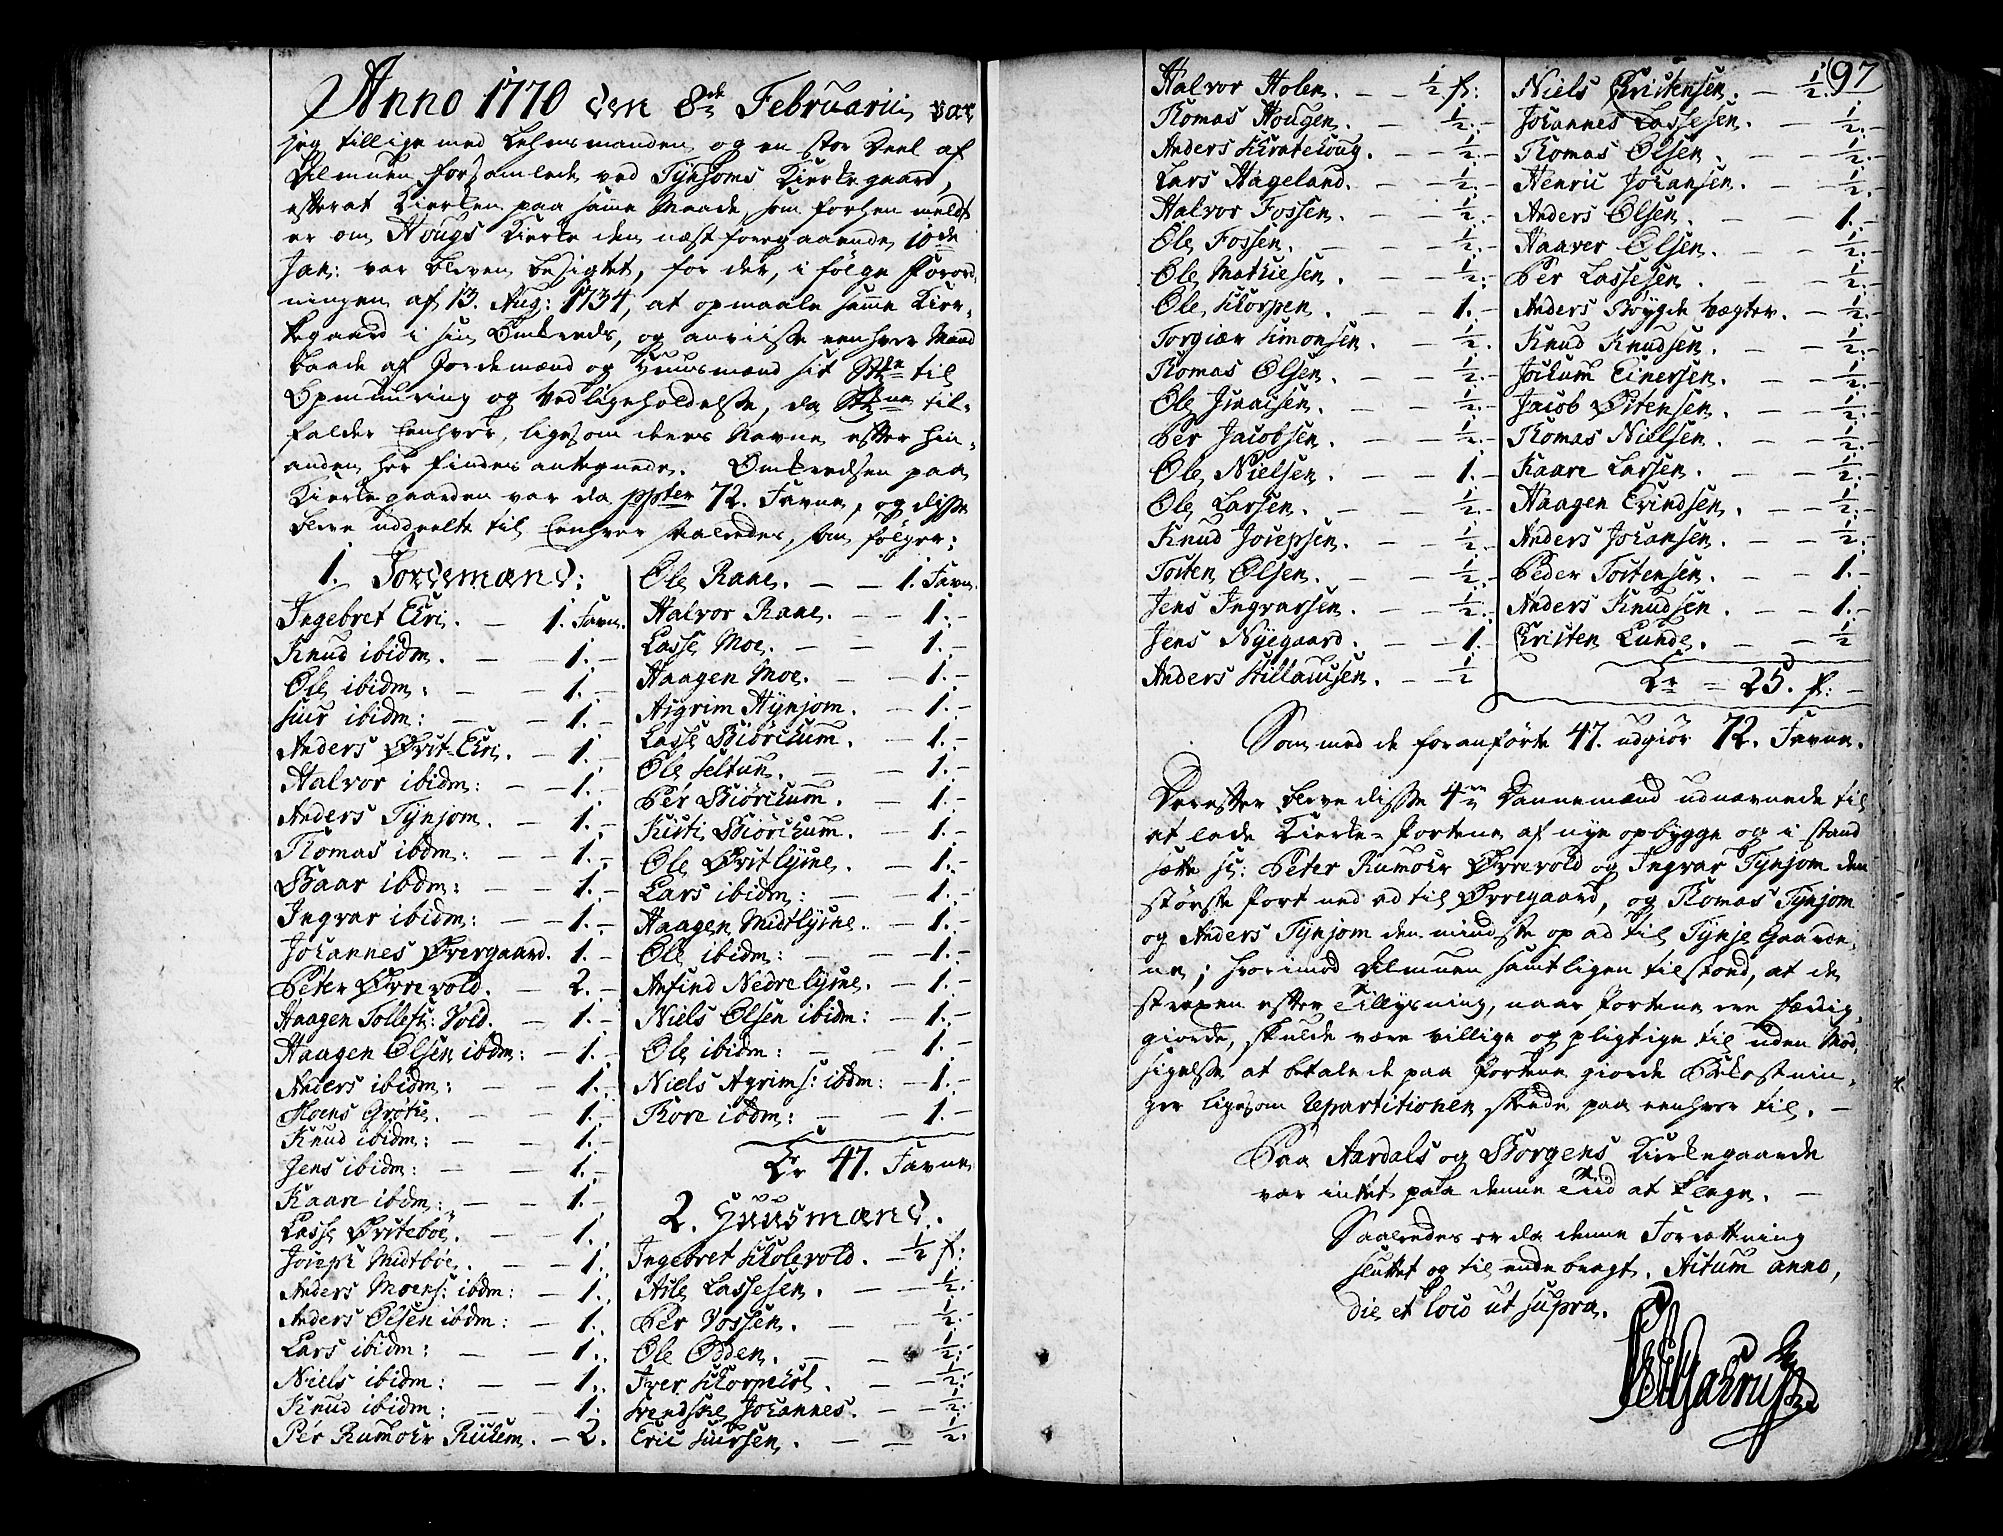 Anno 1770 den 8de Februarii var
jeg tillige med Lehnsmanden og en stor Deel af
Allmuen forsamlede ved Tÿnjoms Kierkegaard,
efterat Kierken paa samme Maade, som forhen meldt
er om Hougs Kierke den næst foregaaende 10de
Jan: var bleven besigtet, for der, i følge Forord-
ningen af 13. Aug: 1734, at opmaale samme Kier-
kegaard i sin Omkreds, og anviise eenhver Mand
baade af Jordemænd og Huusmænd sit Støkke til
Opmuuring og Vedligeholdelse, da Støkkerne til-
falder Eenhver, ligesom deres Navne efter hin-
anden her findes antegnede. Omkredsen paa
Kierkegaarden var da ppter 72. Favne, og disse
bleve uddeelte til Eenhver saaledes, som følger:
1. Jordemænd:
Ingebret Eri. – 1. Favn.
Knud ibidm. – – 1. –
Ole ibidm: – – 1. –
Siur ibidm: – – 1. –
Anders Øvst-Eri. – 1. –
Halvor ibidm: – – 1. –
Anders Tÿnjom. – 1. –
Thomas ibdm: – – 1. –
Baar ibdm: – – 1. –
Ingvar ibidm: – – 1. –
Johannes Øvergaard. 1. –
Peter Øvrevold. – 2. –
Haagen Tollefs: Vold. – 1. –
Haagen Olsen ibdm: – 1. –
Anders ibidm: – – 1. –
Moens Grøthe. – – 1. –
Knud ibidm: – – 1. –
Jens ibidm: – – 1. –
Kaare ibidm: – – 1. –
Lasse Øvstebøe. – 1. –
Joseph Midtbøe. – – 1. –
Anders Moens: ibdm: – 1. –
Anders Olsen ibdm: – 1. –
Lars ibidm: – – 1. –
Niels ibidm: – – 1. –
Knud ibidm: – – 1. –
Pér Rumohr Rikhem. – 2. –
Ole Rane. – – 1. Favn.
Halvor Rane. – – 1. –
Lasse Moe. – – 1. –
Haagen Moe. – – 1. –
Asgrim Hÿnjom. – 1. –
Lasse Biørckum. – 1. –
Ole Seltun. – – 1. –
Pér Biørckum. – 1. –
Kisti Biørckum. – 1. –
Ole Øvstlÿsne. – 1. –
Lars ibidm: – – 1. –
Haagen Midtlÿsne. – 1. –
Ole ibidm: – – 1. –
Anfind Nedrelÿsne. – 1. –
Niels Olsen ibidm: – 1. –
Ole ibidm: – – 1. –
Niels Agrims: ibdm: – 1. –
Tore ibdm: – – 1. –
Er 47. Favne
2. Huusmænd.
Ingebret Skolevold. – ½ f:
Atle Lassesen. – – ½. –
Pér Vossen. – – ½. –
Ole Odden. – – ½. –
Iver Skorpehol. – – ½. –
Svendske Johannes. – – ½. –
Eric Siursen. – – ½. –
97
Halvor Holen. – – ½ f:
Thomas Hougen. – ½. –
Anders Skratehoug. – – ½. –
Lars Hageland. – – ½. –
Halvor Fossen. – – ½. –
Ole Fossen. – – – ½. –
Ole Mathiesen. – – ½. –
Ole Skorpen. – – 1. –
Torgiær Simonsen. – ½. –
Thomas Olsen. – – ½. –
Ole Jsaacsen. – – ½. –
Per Jacobsen. – – ½. –
Ole Nielsen. – – 1. –
Ole Larsen. – – ½. –
Knud Josepsen. – – ½. –
Tosten Olsen. – – ½. –
Jens Ingvarsen. – – ½. –
Jens Nÿegaard. – – 1.
Anders Stillaufsen. – – ½
Niels Christensen. – ½. –
Johannes Lassesen. – ½. –
Thomas Olsen. – – ½. –
Henric Johansen. – – ½. –
Anders Olsen. – – 1. –
Haaver Olsen. – – ½. –
Per Lassesen. – – ½. –
Anders Bøygde Vægter. – ½. –
Knud Knudsen. – – ½. –
Jockum Einersen. – – ½. –
Jacob Østensen. – – ½. –
Thomas Nielsen. – – ½. –
Kaare Larsen. – – ½. –
Haagen Erindsen. – – ½. –
Anders Johansen. – – ½. –
Peder Tostensen. – – 1. –
Anders Knudsen. – – 1. –
Christen Lunde. – – ½
Er = 25. f: –
Som med de foranførte 47. udgiør 72. Favne.
Derefter bleve disse 4re Dannemænd udnævnede til
at lade Kierke-Portene af nye opbygge og i stand
sætte sc: Peter Rumohr Øvrevold og Ingvar Tÿnjom den
største Port ned ad til Øvregaard, og Thomas Tÿnjom
og Anders Tÿnjom den mindste op ad til Tÿnje Gaarde-
ne; hvorimod Allmuen samtligen tilstod, at de
strapen efter Tillÿsning, naar Portene ere færdig-
giorde, skulde være villige og pligtige til uden Mod-
sigelse at betale de paa Portene giorde Bekostnin-
ger ligesom Repartitionen skede paa eenhver til. –
Paa Aardals og Borgens Kierkegaarde
var intet paa denne Tiid at klage. –
Saaledes er da denne Forrettning
sluttet og til ende bragt. Actum anno,
die et loco ut supra.